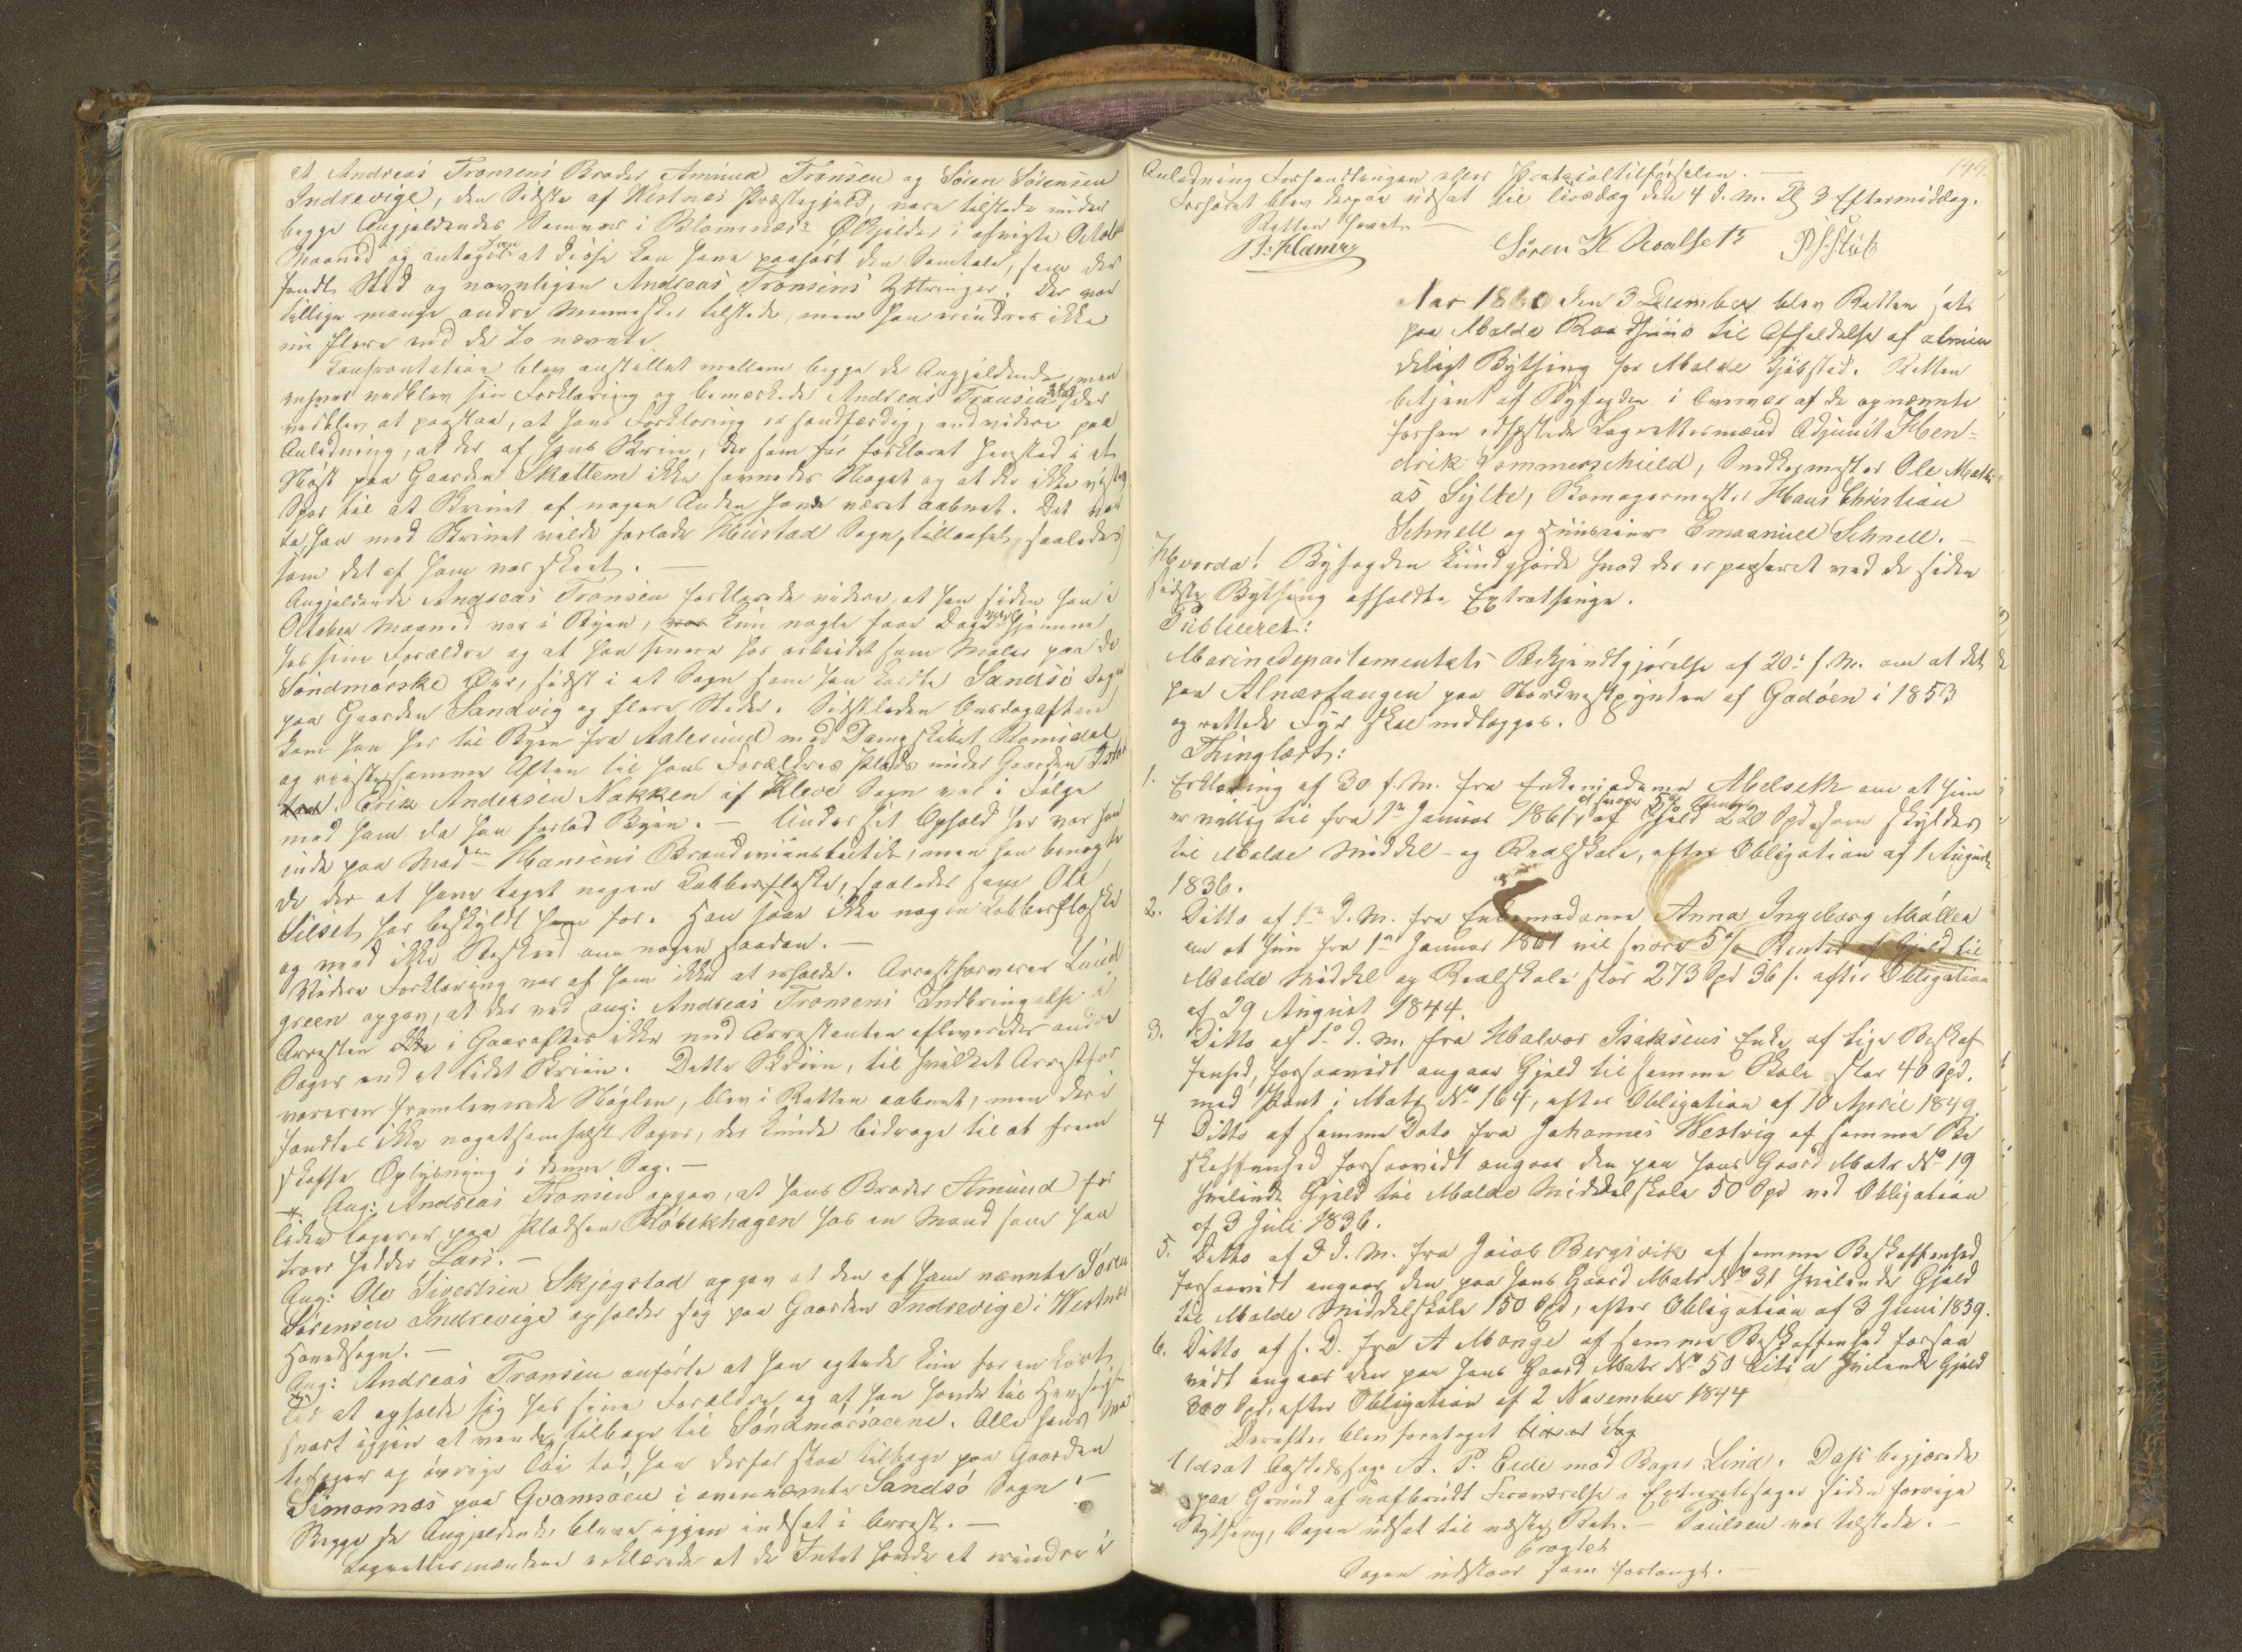 at Andreas Tronsens Broder Amund Tronsen og Søren Sørensen
Indrevige, den Sidste af Westnes Præstegjeld, vare tilstede under
begge Angjeldendes Samvær i Kjælder i afvigte Octob
Maaned og antager han at disse kan have paahørt den Samtale, som der
fandt Sted og navnligen Andreas Tronsens Yttringer. Der var
tillige mange andre Mennesker tilstede, men han erindrer ikke
nu flere end de to nævnte.
Confrontation blev anstillet mellem begge de Angjeldende, men
enhver vedblev sin Forklaring og bemærkede Andreas Tronsen, der
vedblev at paastaa, at hans Forklaring er sandfærdig, endvidere paa
Anledning, at der af hans Skrin, der som før forklaret henstod i et
Nøst paa Gaarden Skottem ikke savnedes Noget og at der ikke vistes
Spor til at Skrinet af nogen Anden havde været aabnet. Det var
da han med Skrinet vilde forlade Hustad Sogn, tillaaset, saaledes
som det af ham var skeet. —
Angjeldende Andreas Tronsen forklarede videre, at han siden han i
October Maaned var i Byen, kun nogle faa Dage var hjemme
hos sine Forældre og at han senere har arbeidet som Maler paa de
Søndmørske Øer, sidst i et Sogn som han kaldte Sandsø Sogn
paa Gaarden Sandvig og flere Steder. Sidstleden Onsdagaften
kom han her til Byen fra Aalesund med Dampskibet Romsdal
og reiste samme Aften til hans Forældres Plads under Gaarden
Erik Andersen Nakken af Kleve Sogn var i Følge
med ham da han forlod Byen. — Under sit Ophold her var han
inde paa Madm Hansens Brændevinsudsalg, men han benegte
de der at have taget nogen Kobberflaske, saaledes som Ole
Silset har beskyldt ham for. Han saae ikke nogen Kobberflaske
og veed ikke Beskeed om nogen saadan. —
Videre Forklaring var af ham ikke at erholde. Arrestforvarer Lund
green opgav, at der ved ang: Andreas Tronsens Indbringelse i
Arresten i Gaaraftes ikke med Arrestanten afleveredes andre
Sager end et lidet Skrin. Dette Skrin, til hvilket Arrestfor
vareren fremleverede Nøglen, blev i Retten aabnet, men deri
fandtes ikke nogetsomhelst Sager, der kunde bidrage til at frem
skaffe Oplysning i denne Sag. —
Ang: Andreas Tronsen opgav, at hans Broder Amund for
tiden logerer paa Pladsen Røbekhagen hos en Mand som han
troer hedder Lars. —
Ang: Ole Sivertsen Skjegstad opgav at den af ham nævnte Søren
Sørensen Indrevige opholder sig paa Gaarden Indrevige i Westnes
Hovedsogn. —
Ang: Andreas Tronsen anførte at han agtede kun for en kort
Tid at opholde sig hos sine Forældre og at han havde til Hensigt
snart igjen at vende tilbage til Søndmørsøerne. Alle hans Ma
lersager og øvrige Tøi lod han derfor staa tilbage paa Gaarden
Simonnæs paa Gvamsøen i ovennævnte Sandsø Sogn. —
Begge de Angjeldende bleve igjen indsat i Arrest. —
Lagrettesmændene erklærede at de Intet havde at erindre i
149.
Anledning Forhandlingen eller Protocoltilførselen. —
Forhøret blev derpaa udsat til Tirsdag den 4 d. M. Kl 3 Eftermiddag.
Retten hævet.
Søren K Roalset
Aar 1860 den 3 December blev Retten sat
paa Molde Raadhuus til Afholdelse af almin
deligt Bything for Molde Kjøbsted. Retten
betjent af Byfogden i Overvær af de opnævnte
forhen edfæstede Lagrettesmænd Adjunct Hen-
drik Sommerschield, Snedkermester Ole Mathi
as Sylte, Skomagermester Hans Christian
Schnell og Huuseier Emanuel Schnell. —
Hvorda! Byfogden kundgjorde hvad der er passeret ved de siden
sidste Bything afholdte Extrathinge.
Publiceret:
Marinedepartementets Bekjendtgjørelse af 20. f. M. om at det
paa Alnæstangen paa Nordvestpynten af Godøen i 1853
oprettede Fyr skal nedlægges.
Thinglæst:
1. Erklæring af 30 f. M. fra Enkemadame Abelseth om at hun
er villig til fra 1ste Januar 1861 at svare 5% Renter af Gjeld 220 Spd som skyldes
til Molde Middel- og Realskole, efter Obligation af 1 August
1836.
2. Ditto af 1ste d. M. fra Enkemadame Anna Ingeborg Møller
om at hun fra 1ste Januar 1861 vil svare 5% Renter af Gjeld til
Molde Middel og Realskole stor 273 Spd 36 s. efter Obligation
af 29 August 1844.
3. Ditto af 1. d. M. fra Halvor Isaksens Enke af lige Beskaf
fenhed, forsaavidt angaaer Gjeld til samme Skole stor 40 Spd.
med Pant i Matr No 164, efter Obligation af 10 April 1849.
4 Ditto af samme Dato fra Johannes Westvig af samme Be
skaffenhed forsaavidt angaaer den paa hans Gaard Matr No 19
hvilende Gjeld til Molde Middelskole 50 Spd ved Obligation
af 3 Juli 1836.
5. Ditto af 3 d. M. fra Jacob Bergsvik af samme Beskaffenhed
forsaavidt angaaer den paa hans Gaard Matr No 31 hvilende Gjeld
til Molde Middelskole 150 Spd, efter Obligation af 3 Juni 1839.
6. Ditto af s. D. fra A Monge af samme Beskaffenhed forsaa
vidt angaaer den paa hans Gaard Matr No 50 Litr a hvilende Gjeld
300 Spd, efter Obligation af 2 November 1844
Derefter blev foretaget
Udsat Gjæstedssag A. P. Eide mod Bager Lind. Dahl begjærede
paa Grund af uafbrudt Fraværelse i Extraretssager siden forrige
Bything, Sagen udsat til næste Ret. — Paulsen var tilstede. —
Eragtet
Sagen udstaar som forlangt. —